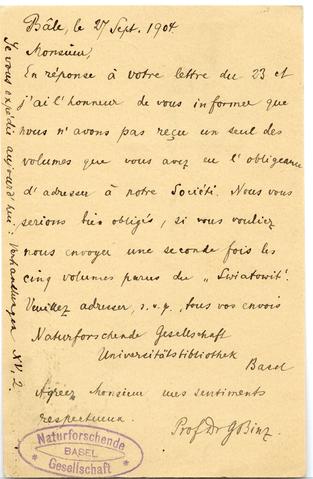 Bâle, le 27 Sept. 1904
Monsieur,
En réponse à votre lettre du 23 ct
j'ai l'honneur de vous informer que
nous n'avons pas reçu un seul des
volumes que vous avez eu l'obligeance
d'adresser à notre Société. Nous vous
serions très obligés, si vous vouliez
nous envoyer une seconde fois les
cinq volumes parus du „Swiatowit".
Veuillez adresser, s.v.p., tous vos envois
Naturforschende Gesellschaft
Universitätsbibliothek
Basel
Agréez Monsieur mes sentiments
respectueux.
Prof Dr G Binz
Naturforschende
BASEL
Gesellschaft
Je vous expédie aujourd'hui: Verhandlungen XV, 2.